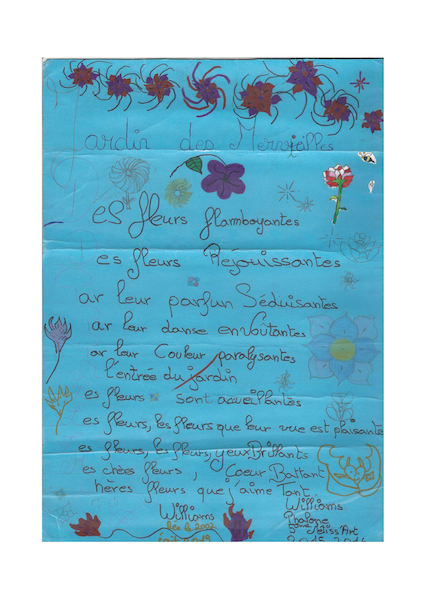 ardin des Merveilles
es fleurs flamboyantes
es fleurs Réjouissantes
ar leur parfun Séduisantes
ar leur danse envoutantes
ar leur Couleur paralysantes
l'entrée du jardin
es fleurs sont acueillantes
es fleurs, les fleurs que leur vue est plaisante
es fleurs, les fleurs, yeux Brillants
es chères fleurs, Coeur Battant
hères fleurs que j'aime Tant
Williams
Williams
2015 2016